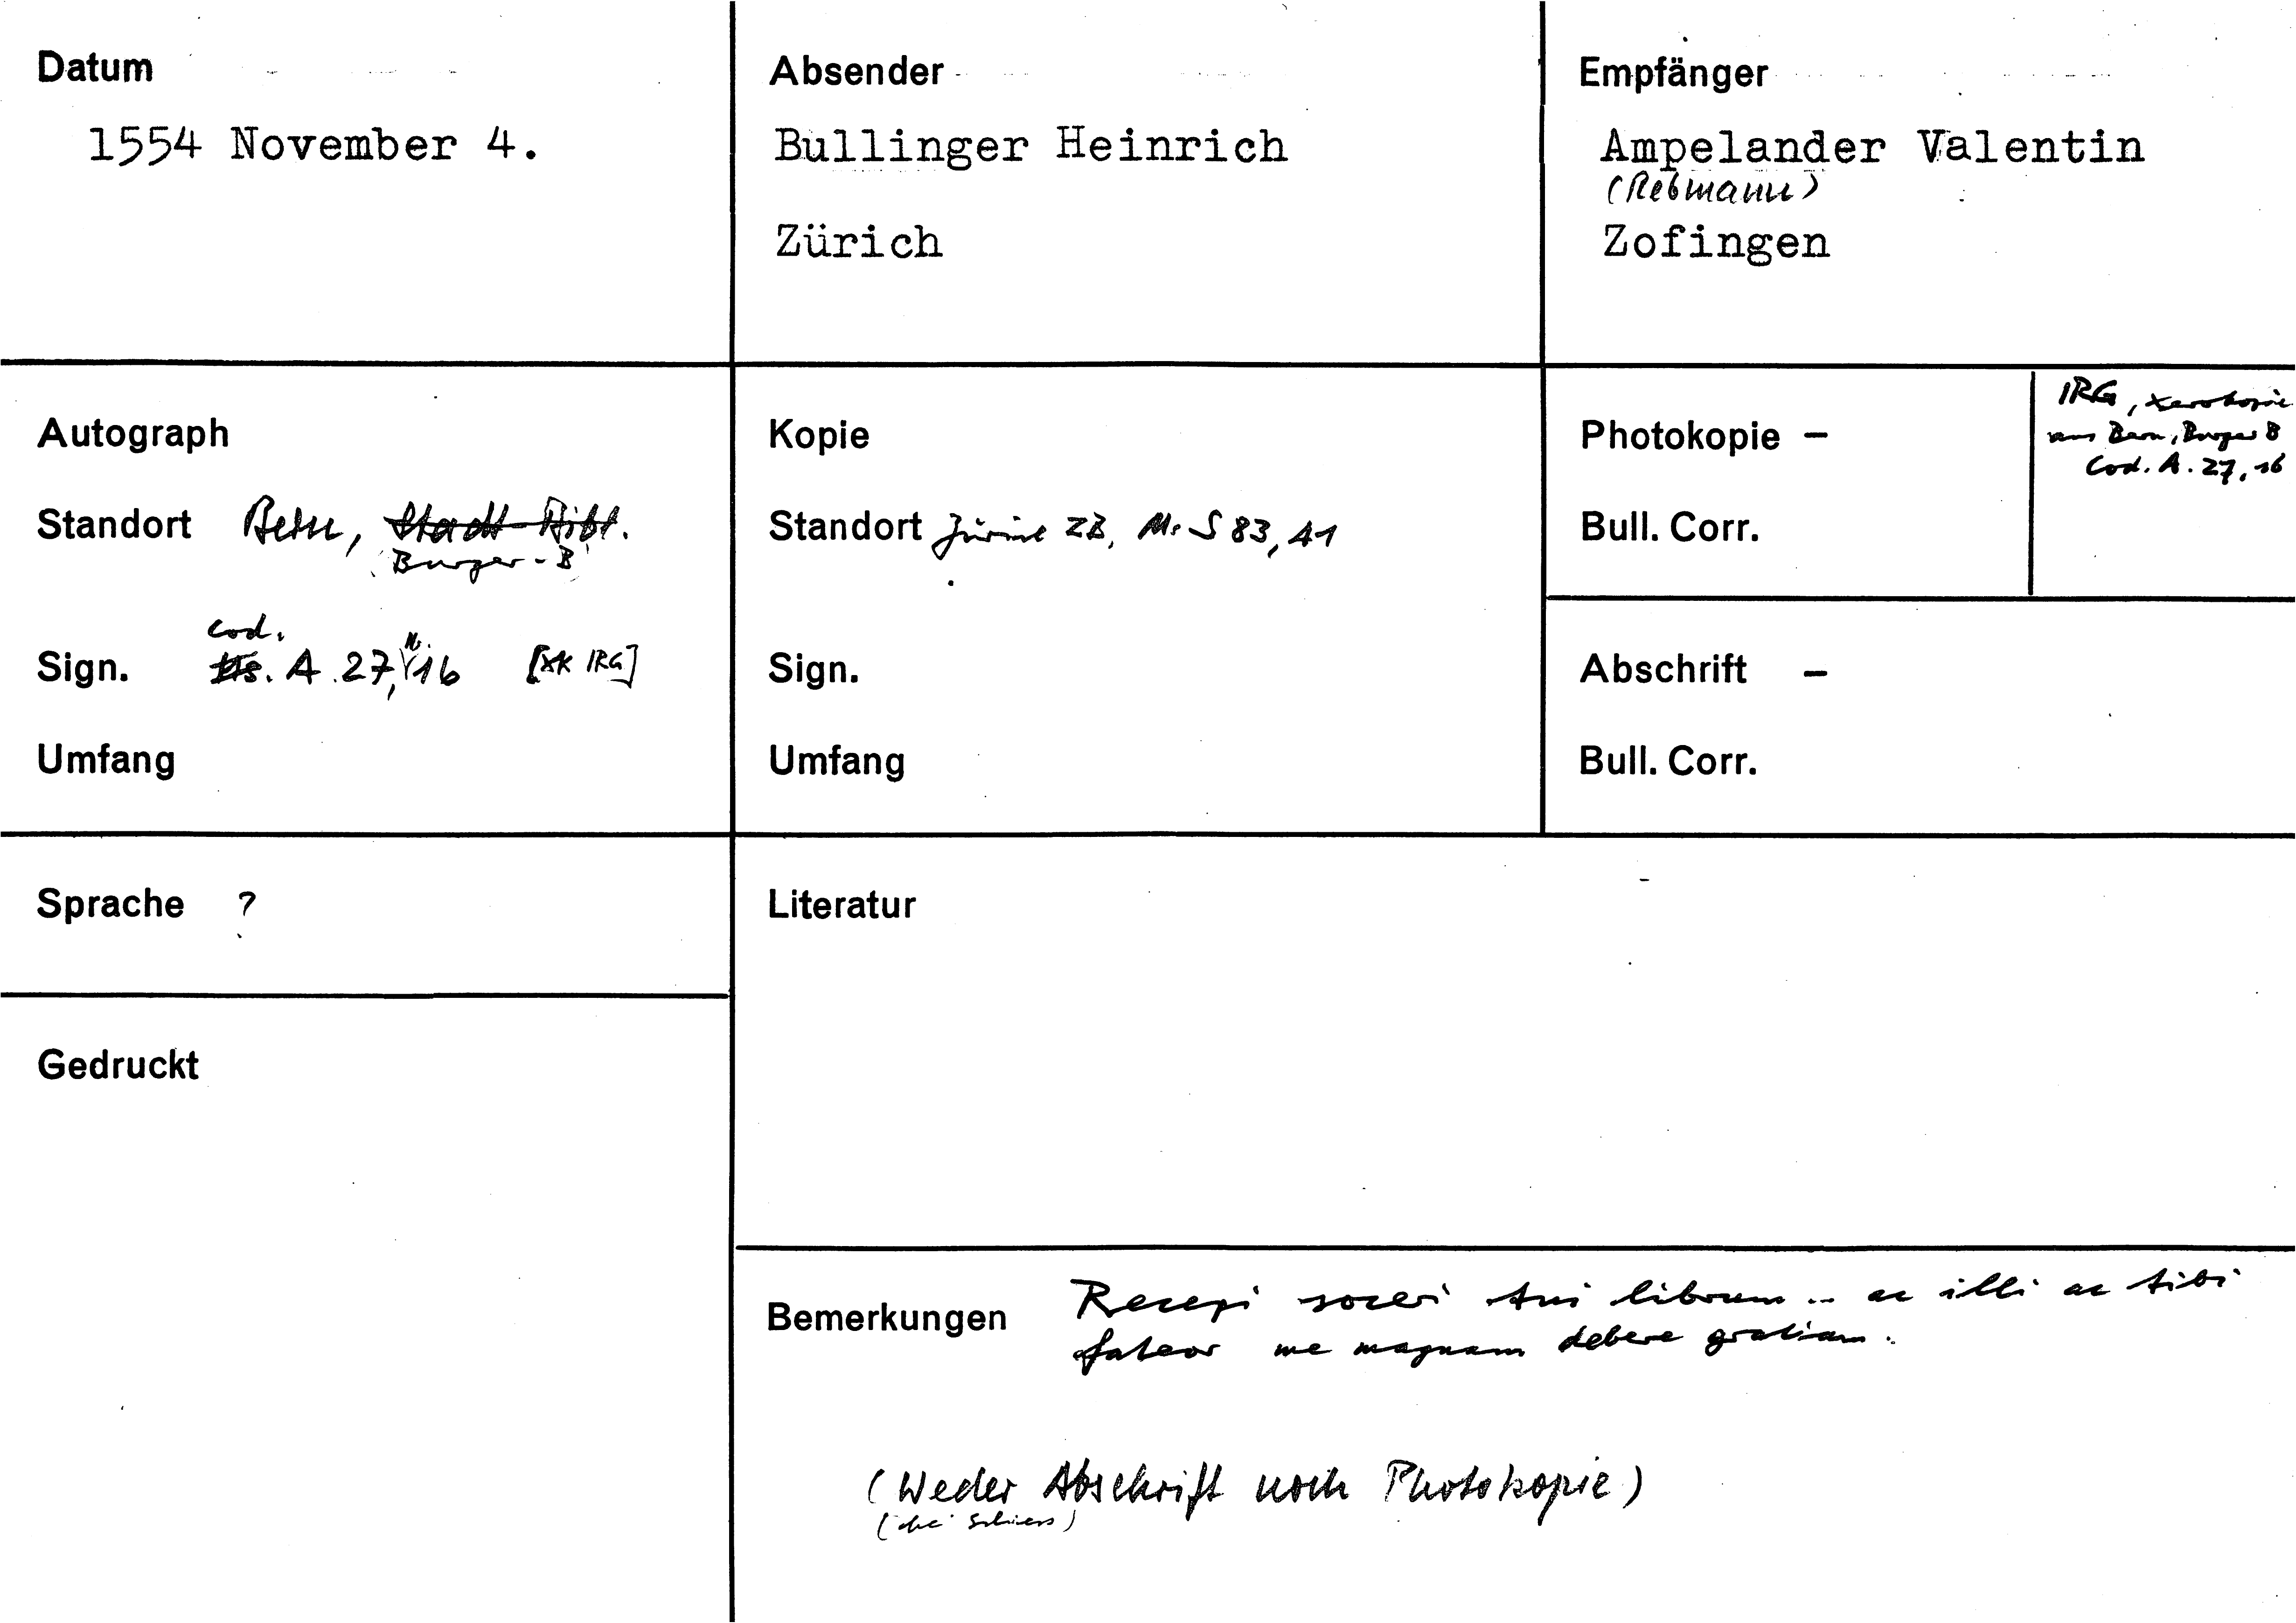 Datum
1554 November 4.
Absender
Bullinger Heinrich
Zürich
Empfänger
Ampelander Valentin
(Rebmann)
Zofingen
Autograph
Standort Bern, Stadt-Bibl.
Burger-B
Cod.
Sign. Hs. A 27, Nr. 16 [XK IRG]
Umfang
Kopie
Standort Zürich ZB, Ms S 83, 41
Sign.
Umfang
Photokopie –
Bull. Corr.
IRG, Xerokopie
aus Bern, Burger B
Cod. A. 27, 16
Abschrift –
Bull. Corr.
Sprache ?
Gedruckt
Literatur
Bemerkungen Recepi soceri tui librum .. ac illi ac tibi
fateor me magnam debere gratiam.
(Weder Abschrift noch Photokopie)
(bei Schiess)